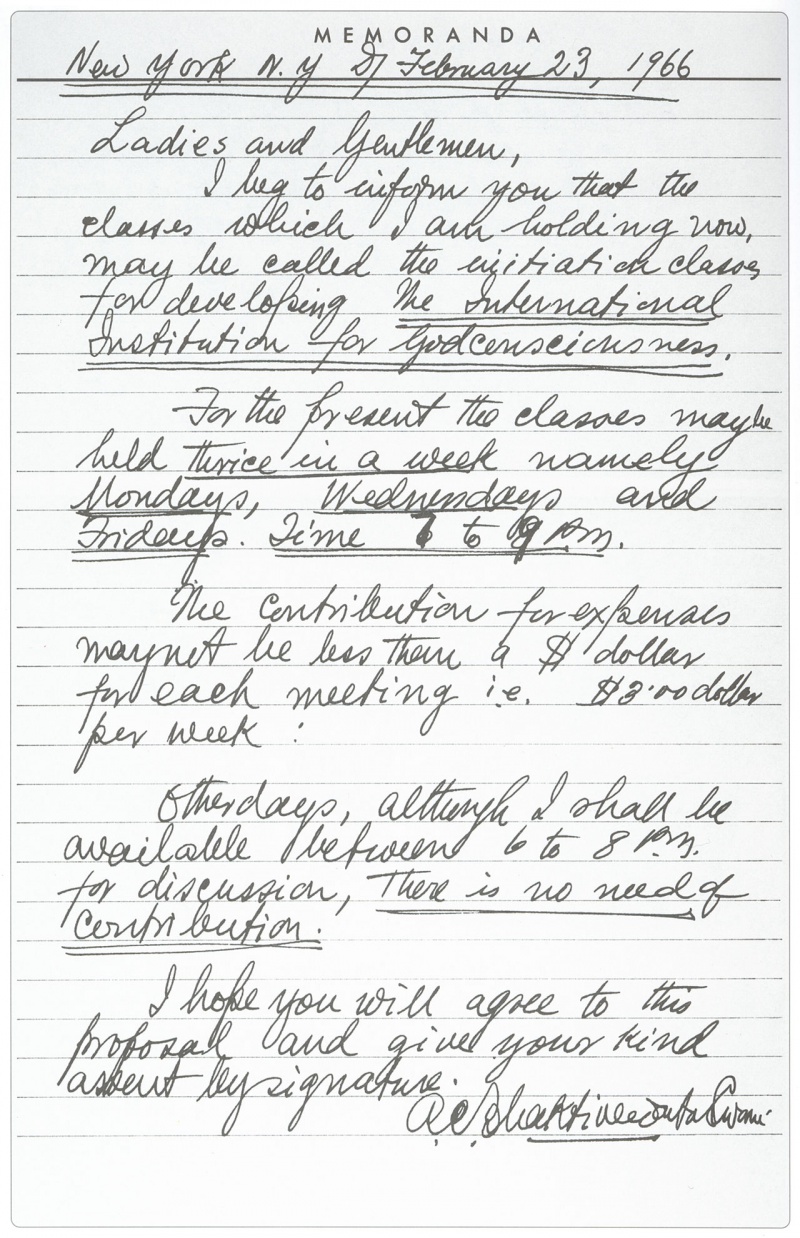 MEMORANDA
New York N.Y D/ February 23, 1966
Ladies and Gentlemen,
I beg to inform you that the
classes which I am holding now,
may be called the initiation classes
for developing The International
Institution for Godconsciousness.
For the present the classes may be
held thrice in a week namely
Mondays, Wednesdays and
Fridays. Time to P.M.
The contribution for expenses
maynot be less than a $ dollar
for each meeting i.e. $3.00 dollar
per week :
Otherdays, although I shall be
available between 6 to 8 P.M.
for discussion, There is no need of
contribution.
I hope you will agree to this
proposal and give your kind
assent by signature.
A.C. Bhaktivedanta Swami